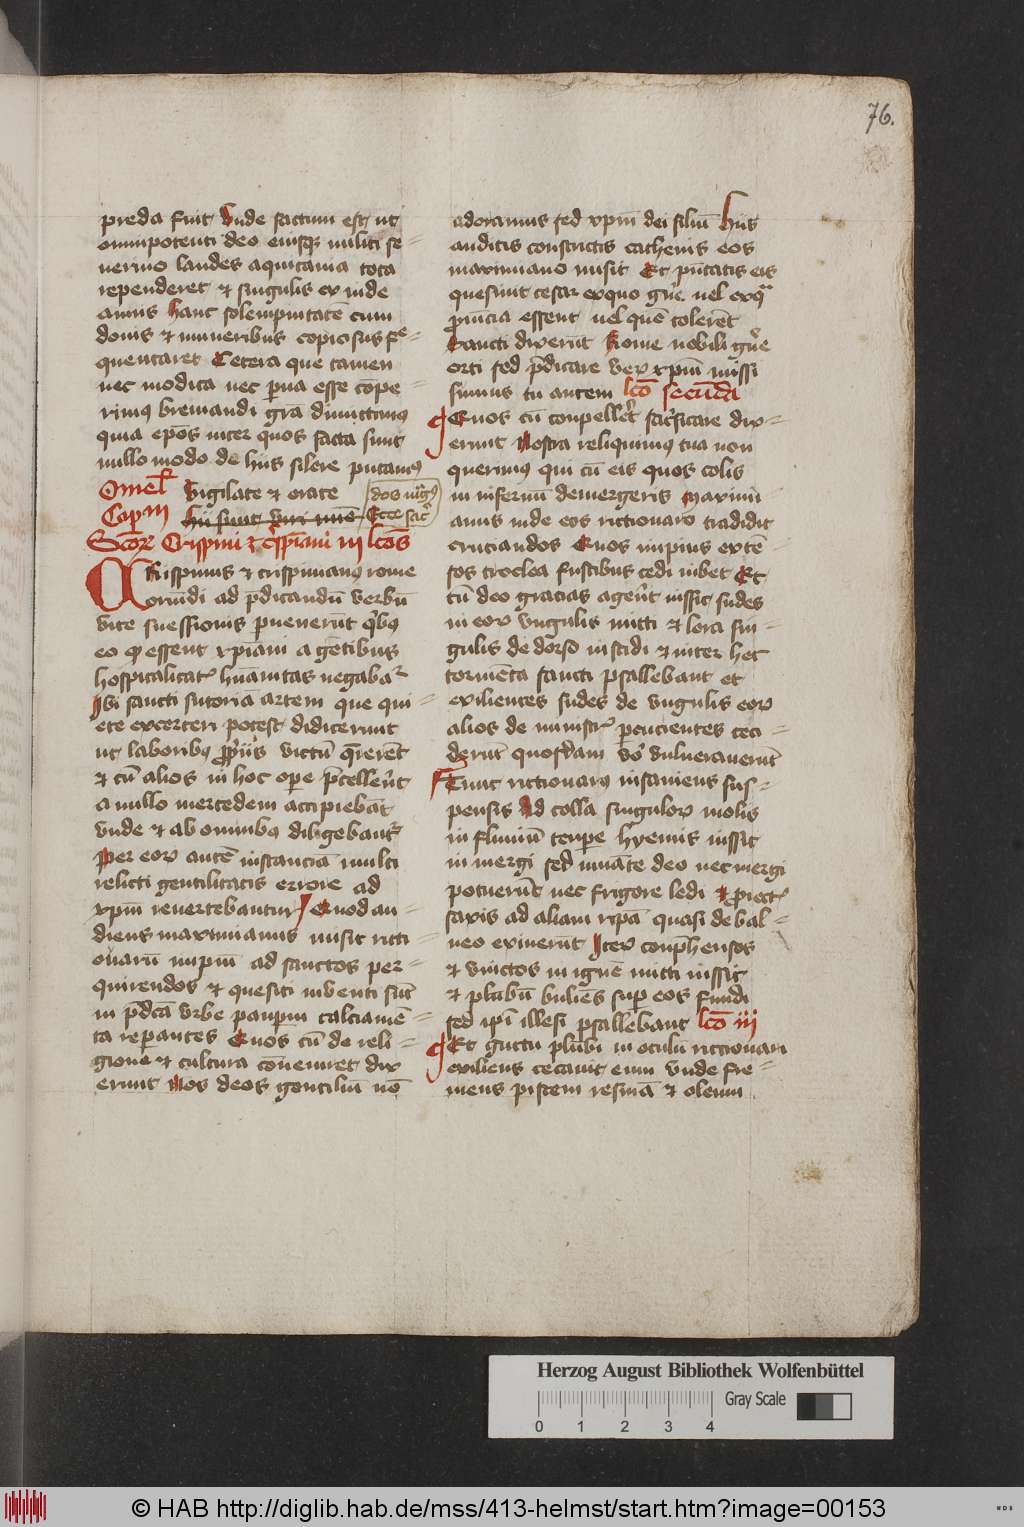 76.
preda fuit Vnde factum est ut
omnipotenti deo eiusq militi se=
uerino laudes aquitania tota
rependeret et singulis ex inde
annis hanc solempnitatē cum
donis et muneribus copiosius fre=
quentaret Cetera que tamen
nec modica nec p̄ua esse cōpe=
rimꝰ breuiandi grā dimittimꝰ
quia ep̄os inter quos facta sunt
nullo modo de hiis silere putamꝰ
Omel̄ Vigilate et orate
hii sunt viri Ecce sac̄
Sctōꝝ Crispini et c̄spiani iii lcōs
CRispinus et crispinianꝰ rome
oriūdi ad p̄dicandū verbū
vite suessionis puenerūt qͥbꝰ
eo qͦ essent xpiani a gētibus
hospitalitatꝭ hūanitas negabaᷣ
Ibi sancti sutoriā artem que qui=
ete exerceri potest didicerunt
ut laboribꝰ p̱p̱iis victū q̄rerēt
et cū alios in hoc opere p̄cellerēt
a nullo mercedem accipiebāt
vnde et ab omnibꝰ diligebantᷣ
Per eoꝝ autē instancia multi
relicti gentilitatis errore ad
xpm̄ reuertebantur Quod au=
diens maximianus misit ricti=
ouarū impiū ad sanctos per=
quirendos et quesiti inuenti sūt
in p̄dcā vrbe paupm̄ calciamē=
ta repantes Quos cū de reli=
gione et cultura cōueniret dix
erunt Nos deos gentiliū nō
adoramus sed xpm̄ dei filiū hiis
auditis constrictis cathenis eos
maximiano misit Et p̄ntatis eis
quesiuit cesar ex quo gn̄e uel ex qͣ
p̱uīcia essent uel quē colerēt
Sancti dixerūt Rome nobili gn̄e
orti sed p̄dicare veꝝ xpm̄ missi
sumus tu autem lcō secūda
Quos cū conpelleret sacͥficare dix=
erunt Nostra reliquimꝰ tua non
querimꝰ qui cū eis quos colis
in infernū demergeris Maximi
anus inde eos rictionaro tradidit
cruciandos Quos impius extē=
sos troclea fustibus cedi iubet Et
cū deo gracias agerēt iussit sudes
in eoꝝ vngulis mitti et lora sin=
gulis de dorso inscidi et inter hec
tormēta sancti psallebant et
exilientes sudes de vngulis eoꝝ
alios de ministrꝭ pcucientes ceci=
derūt quosdam vͦo vulnerauerūt
Tunc rictionarꝰ insaniens sus=
pensis ad colla singuloꝝ molis
in fluuiū tempe hyemis iussit
in mergi sed iuuāte deo nec mergi
potuerūt nec frigore ledi et p̱iectꝭ
saxis ad aliam ripā quasi de bal=
neo exiuerūt Iteꝝ conphensos
et vinctos in ignē mitti iussit
et plūbū buliēs sup eos fundi
sed ipī illesi psallebant lcō iii
Et gutta plūbi in oculū rictionari
exiliens cecauit eum vnde fre=
mens picem resinā et oleum
Herzog August Bibliothek Wolfenbüttel
Gray Scale
0 1 2 3 4
© HAB http://diglib.hab.de/mss/413-helmst/start.htm?image=00153